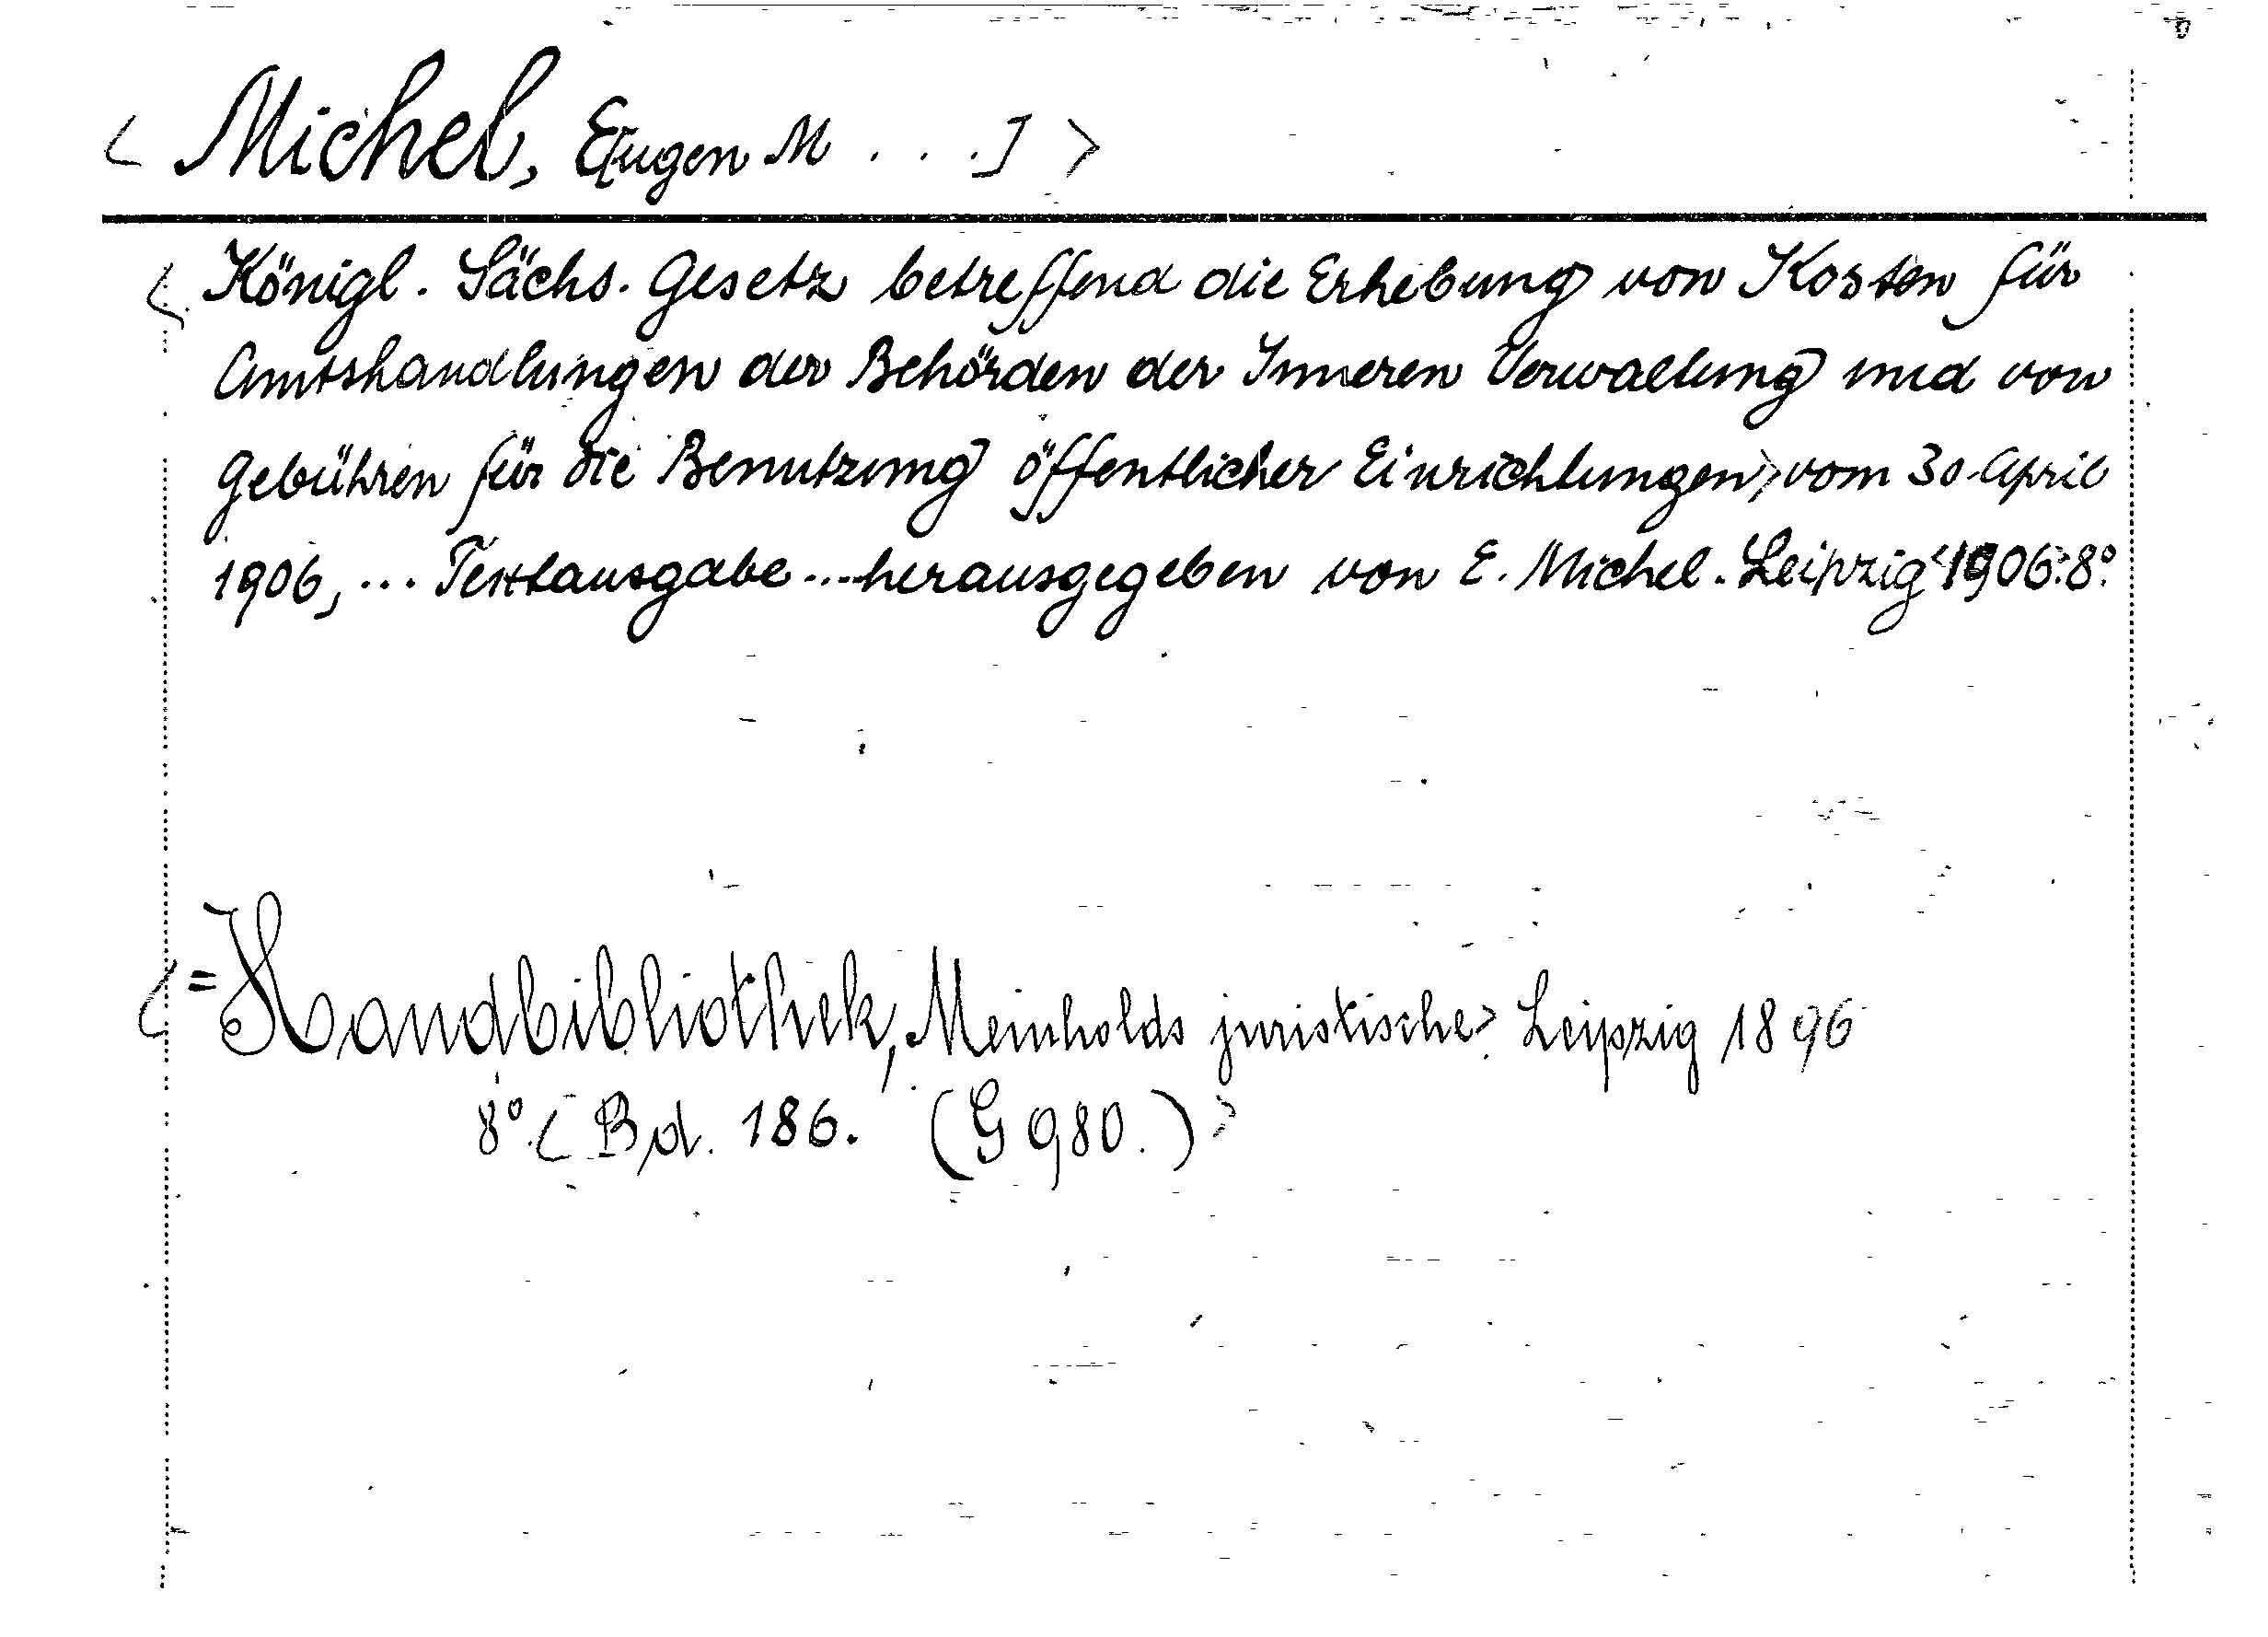 < Michel, E[ugen M . . .] >
< Königl. Sächs. Gesetz betreffend die Erhebung von Kosten für
Amtshandlungen der Behörden der Inneren Verwaltung und von
Gebühren für die Benutzung öffentlicher Einrichtungen > vom 30. April
1906, ... Textausgabe ... herausgegeben von E. Michel. Leipzig < 1906 > 8°.
< = Handbibliothek, Meinholds juristische > Leipzig 1896
8°. < Bd. 186. (G 980.) >